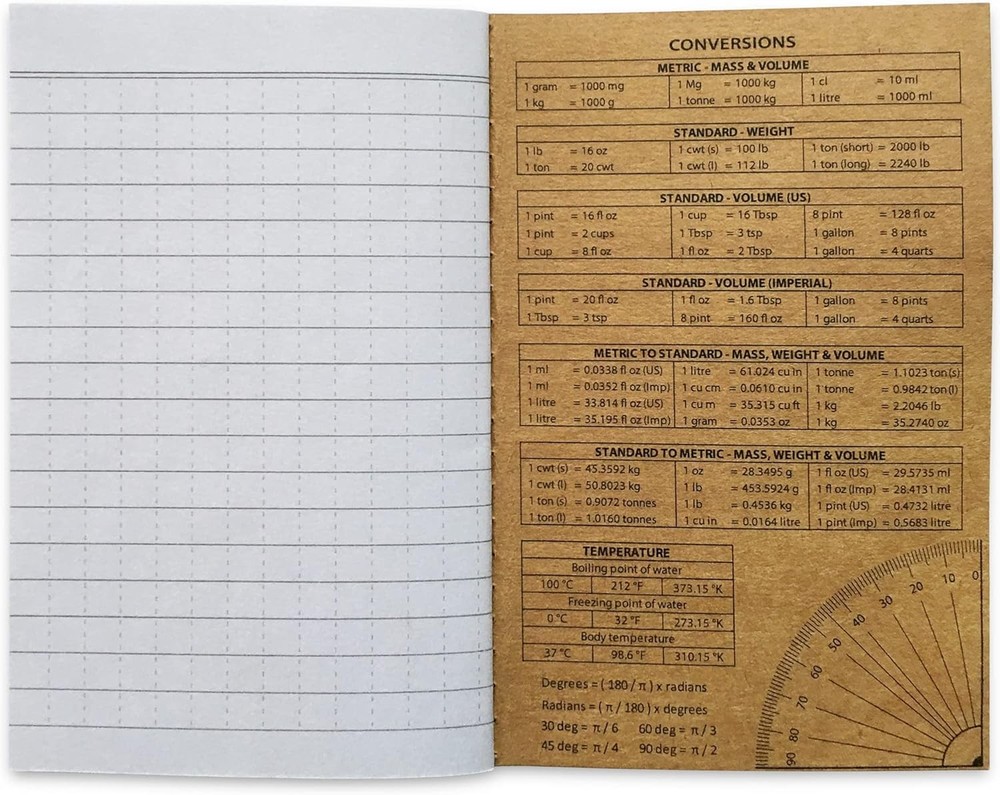 CONVERSIONS
METRIC - MASS & VOLUME
1 gram = 1000 mg 1 Mg = 1000 kg 1 cl = 10 ml
1 kg = 1000 g 1 tonne = 1000 kg 1 litre = 1000 ml
STANDARD - WEIGHT
1 lb = 16 oz 1 cwt (s) = 100 lb 1 ton (short) = 2000 lb
1 ton = 20 cwt 1 cwt (l) = 112 lb 1 ton (long) = 2240 lb
STANDARD - VOLUME (US)
1 pint = 16 fl oz 1 cup = 16 Tbsp 8 pint = 128 fl oz
1 pint = 2 cups 1 Tbsp = 3 tsp 1 gallon = 8 pints
1 cup = 8 fl oz 1 fl oz = 2 Tbsp 1 gallon = 4 quarts
STANDARD - VOLUME (IMPERIAL)
1 pint = 20 fl oz 1 fl oz = 1.6 Tbsp 1 gallon = 8 pints
1 Tbsp = 3 tsp 8 pint = 160 fl oz 1 gallon = 4 quarts
METRIC TO STANDARD - MASS, WEIGHT & VOLUME
1 ml = 0.0338 fl oz (US) 1 litre = 61.024 cu in 1 tonne = 1.1023 ton (s)
1 ml = 0.0352 fl oz (Imp) 1 cu cm = 0.0610 cu in 1 tonne = 0.9842 ton (l)
1 litre = 33.814 fl oz (US) 1 cu m = 35.315 cu ft 1 kg = 2.2046 lb
1 litre = 35.195 fl oz (Imp) 1 gram = 0.0353 oz 1 kg = 35.2740 oz
STANDARD TO METRIC - MASS, WEIGHT & VOLUME
1 cwt (s) = 45.3592 kg 1 oz = 28.3495 g 1 fl oz (US) = 29.5735 ml
1 cwt (l) = 50.8023 kg 1 lb = 453.5924 g 1 fl oz (Imp) = 28.4131 ml
1 ton (s) = 0.9072 tonnes 1 lb = 0.4536 kg 1 pint (US) = 0.4732 litre
1 ton (l) = 1.0160 tonnes 1 cu in = 0.0164 litre 1 pint (Imp) = 0.5683 litre
TEMPERATURE
Boiling point of water
100 °C 212 °F 373.15 °K
Freezing point of water
0 °C 32 °F 273.15 °K
Body temperature
37 °C 98.6 °F 310.15 °K
Degrees = ( 180 / π ) x radians
Radians = ( π / 180 ) x degrees
30 deg = π / 6 60 deg = π / 3
45 deg = π / 4 90 deg = π / 2
0
10
20
30
40
50
60
70
80
90